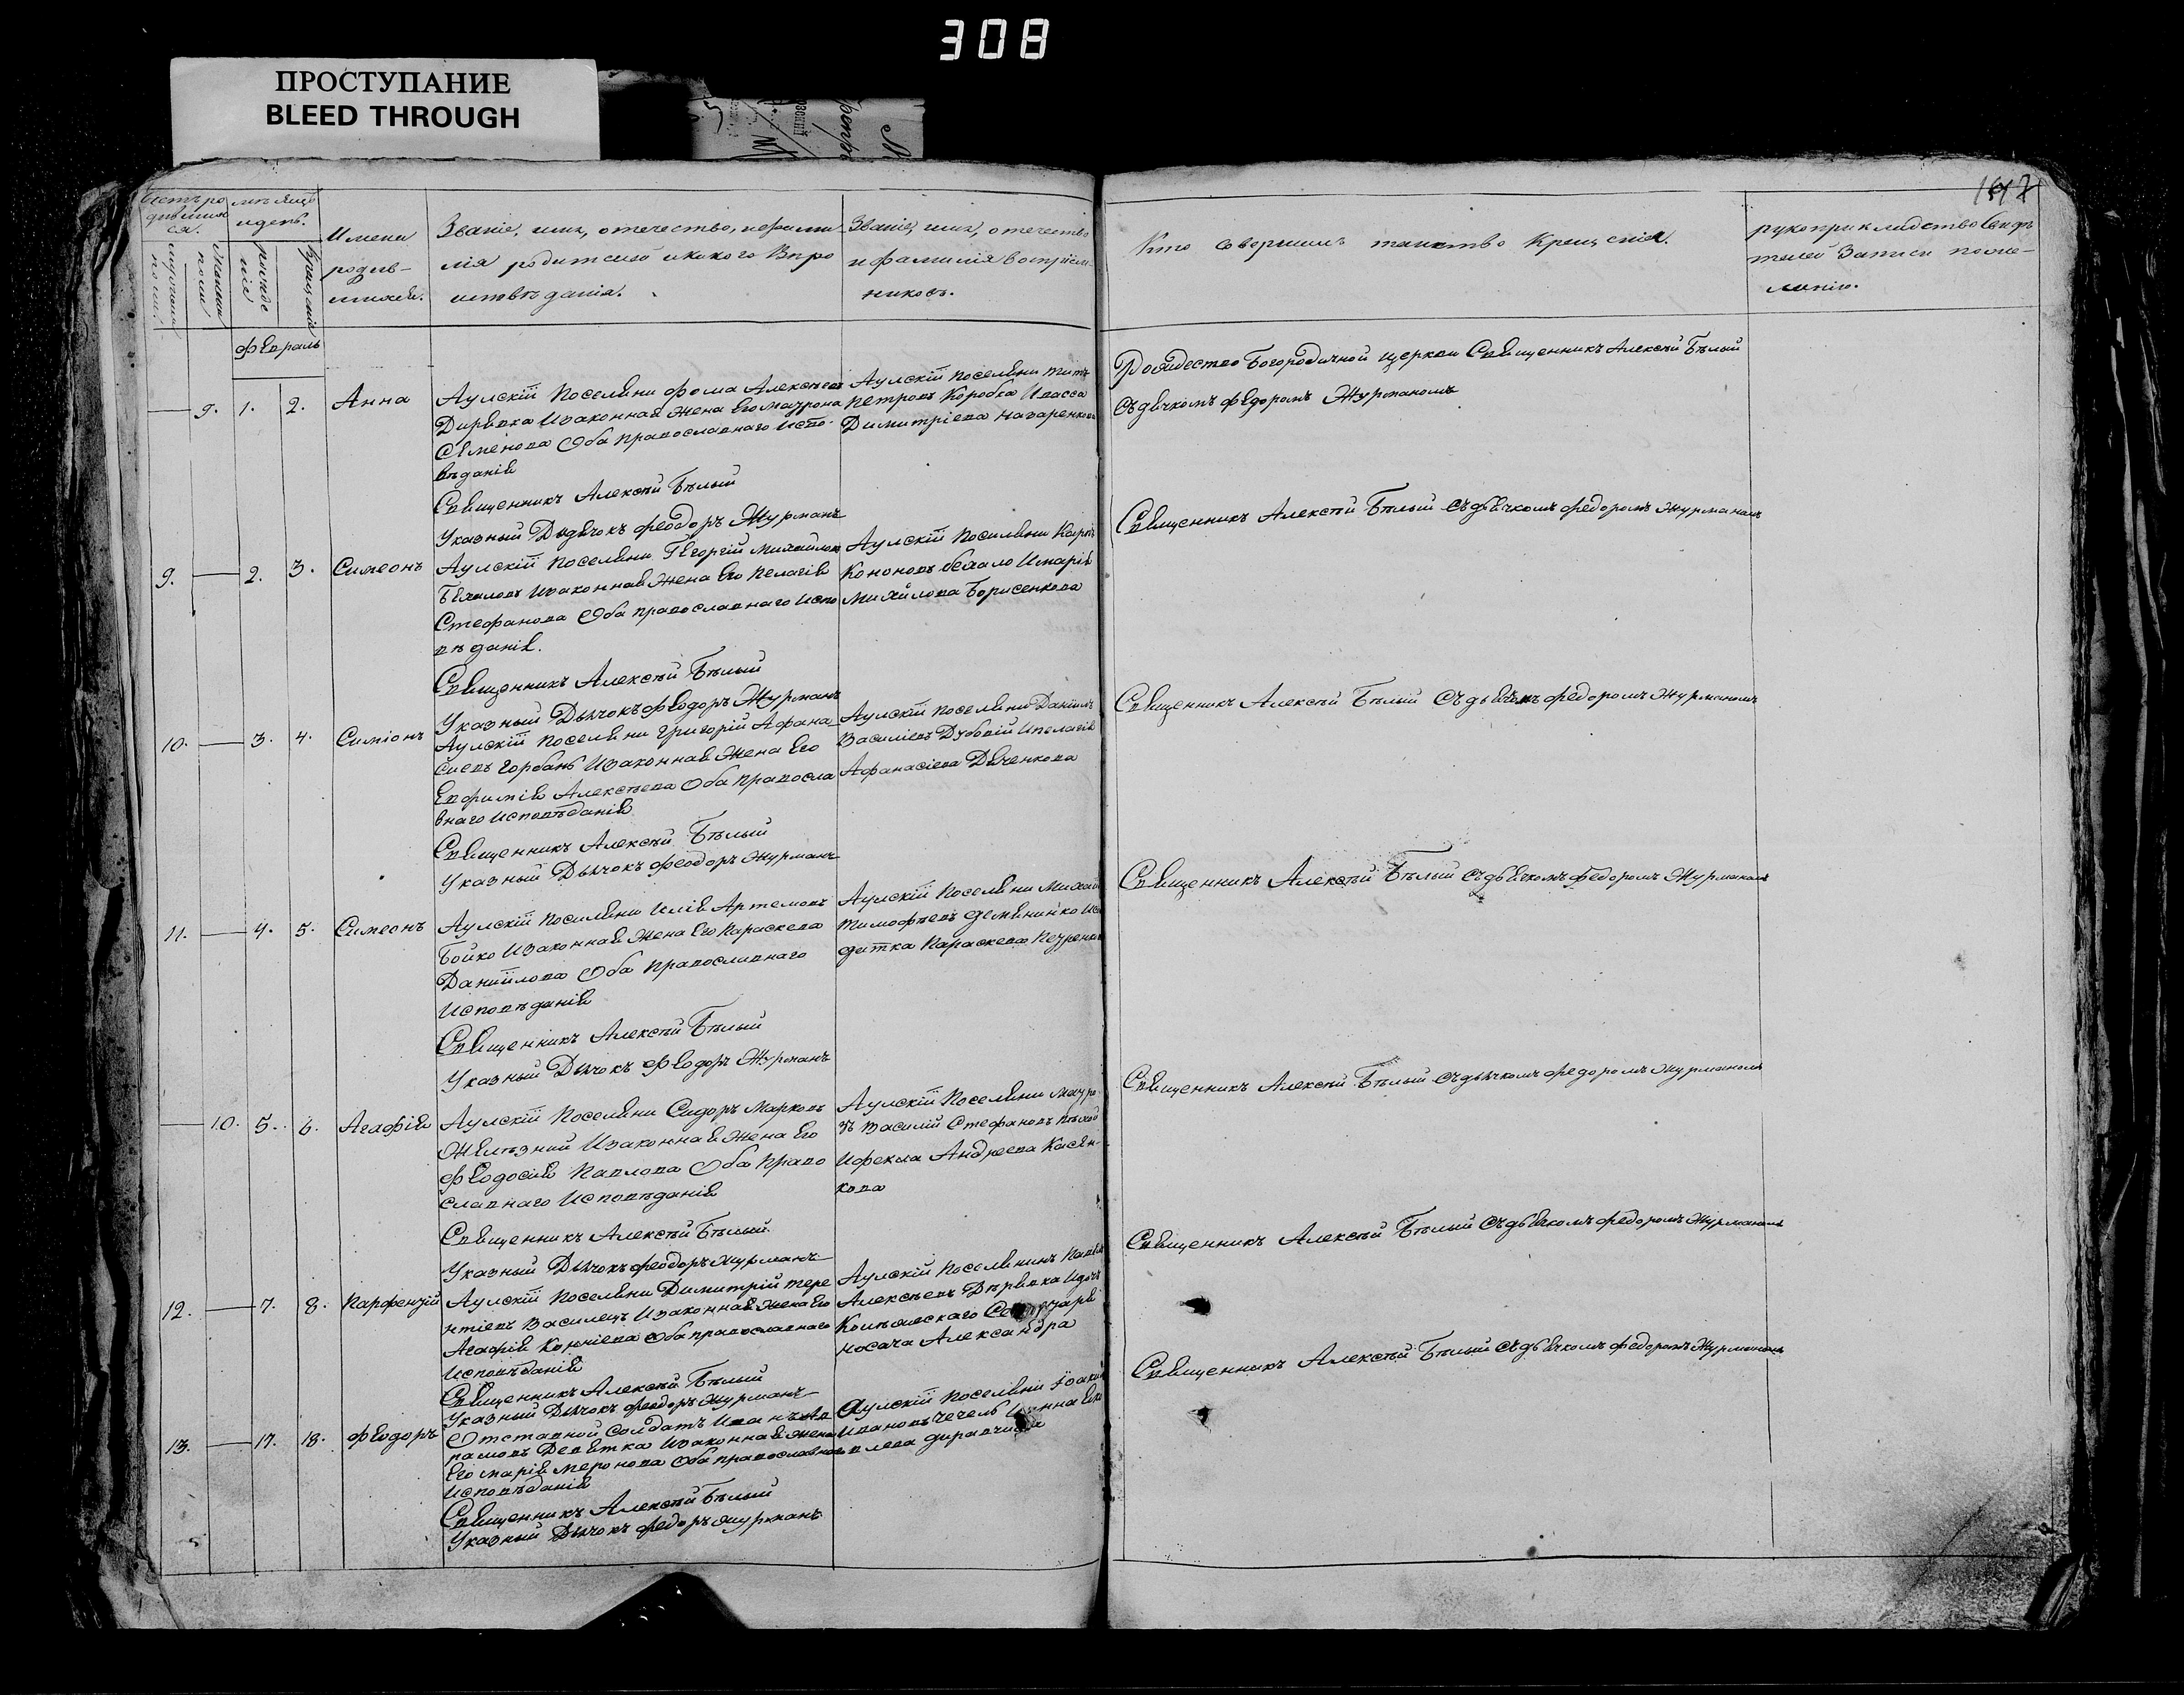 308
ПРОСТУПАНИЕ
BLEED THROUGH
Имена
родив-
шихся.
Званіе, имя, отечество, и фами
лія родителей и какого Вѣро
исповѣданія.
Званіе, имя, отечество
и фамилія воспріем-
никовъ.
Кто совершилъ таинство Крещенія.
рукоприкладство Свидѣ
телей Записи по же-
ланію.
Февраль
9. 1. 2. Анна
Аулскій Поселянинъ Фома Алексѣевъ
Дирѣвка Изаконная Жена Его Матрона
Семенова Оба православнаго Испо-
вѣданія
Священникъ Алексѣй Бѣлый
Указный Дьячокъ Феодоръ Журманъ
Аулскій поселяни Титъ
Петровъ Коробка
Димитріева Назаренкова
Рождество Богородичной Церкви Священникъ Алексѣй Бѣлый
Съ дьячкомъ Федоромъ Журманомъ
9. 2. 3. Симеонъ
Аулскій Поселяни Георгій Михайловъ
Изаконная Жена Его Пелагія
Стефанова Оба православнаго Испо
вѣданія.
Священникъ Алексѣй Бѣлый
Указный Дьячокъ Феодоръ Журманъ
Аулскій Поселяни Карпъ
Кононовъ Имарія
Михайлова Борисенкова
Священникъ Алексѣй Бѣлый Съ дьячкомъ Федоромъ Журманомъ
10. 3. 4. Симіонъ
Аулскій Поселяни Григорій Афана
сиевъ Горбань Изаконная Жена Его
Евфимія Алексѣева Оба Правосла
внаго Исповѣданія
Священникъ Алексѣй Бѣлый
Указный Дьячокъ Феодоръ Журманъ
Аулскій Поселяни Даніилъ
Василіевъ Дубовій Ипелагія
Афанасіева Дяченкова
Священникъ Алексѣй Бѣлый Съ дьячкомъ Федоромъ Журманомъ
11. 4. 5. Симеонъ
Аулскій Поселяни Илія Артемовъ
Бойко Изаконная Жена Его Параскева
Даниилова Оба Православнаго
Исповѣданія
Священникъ Алексѣй Бѣлый
Указный Дьячокъ Феодоръ Журманъ
Аулскій Поселяни Михаи
Тимофѣевъ Демяненко Исол
датка Параскева
Священникъ Алексѣй Бѣлый Съ дьячкомъ Федоромъ Журманомъ
10. 5. 6. Агафія
Аулскій Поселяни Сидоръ Марковъ
Желѣзний Изаконная Жена Его
Феодосія Павлова Оба Право
славнаго Исповѣданія
Священникъ Алексѣй Бѣлый
Указный Дьячокъ Феодоръ Журманъ
Аулскій Поселяни
Василій Стефановъ
Ифекла Андреева Касян-
кова
Священникъ Алексѣй Бѣлый Съ дьячкомъ Федоромъ Журманомъ
12. 7. 8. Парфентій
Аулскій Поселяни Димитрій Тере
нтіевъ Василецъ Изаконная Жена Его
Агафія Корніева Оба православнаго
Исповѣданія
Священникъ Алексѣй Бѣлый
Указный Дьячокъ Феодоръ Журманъ
Аулскій Поселянинъ
Алексѣевъ Дирѣвка
Носача Александра
Священникъ Алексѣй Бѣлый Съ дьячкомъ Федоромъ Журманомъ
13. 17. 18. Феодоръ
Отставной Солдатъ Иванъ Ав
рамовъ Девятка Изаконная Жена
Его Марія Миронова Оба православнаго
Исповѣданія
Священникъ Алексѣй Бѣлый
Указный Дьячокъ Федоръ Журманъ
Аулскій Поселяни
Ивановъ Чечель
Священникъ Алексѣй Бѣлый Съ дьячкомъ Федоромъ Журманомъ